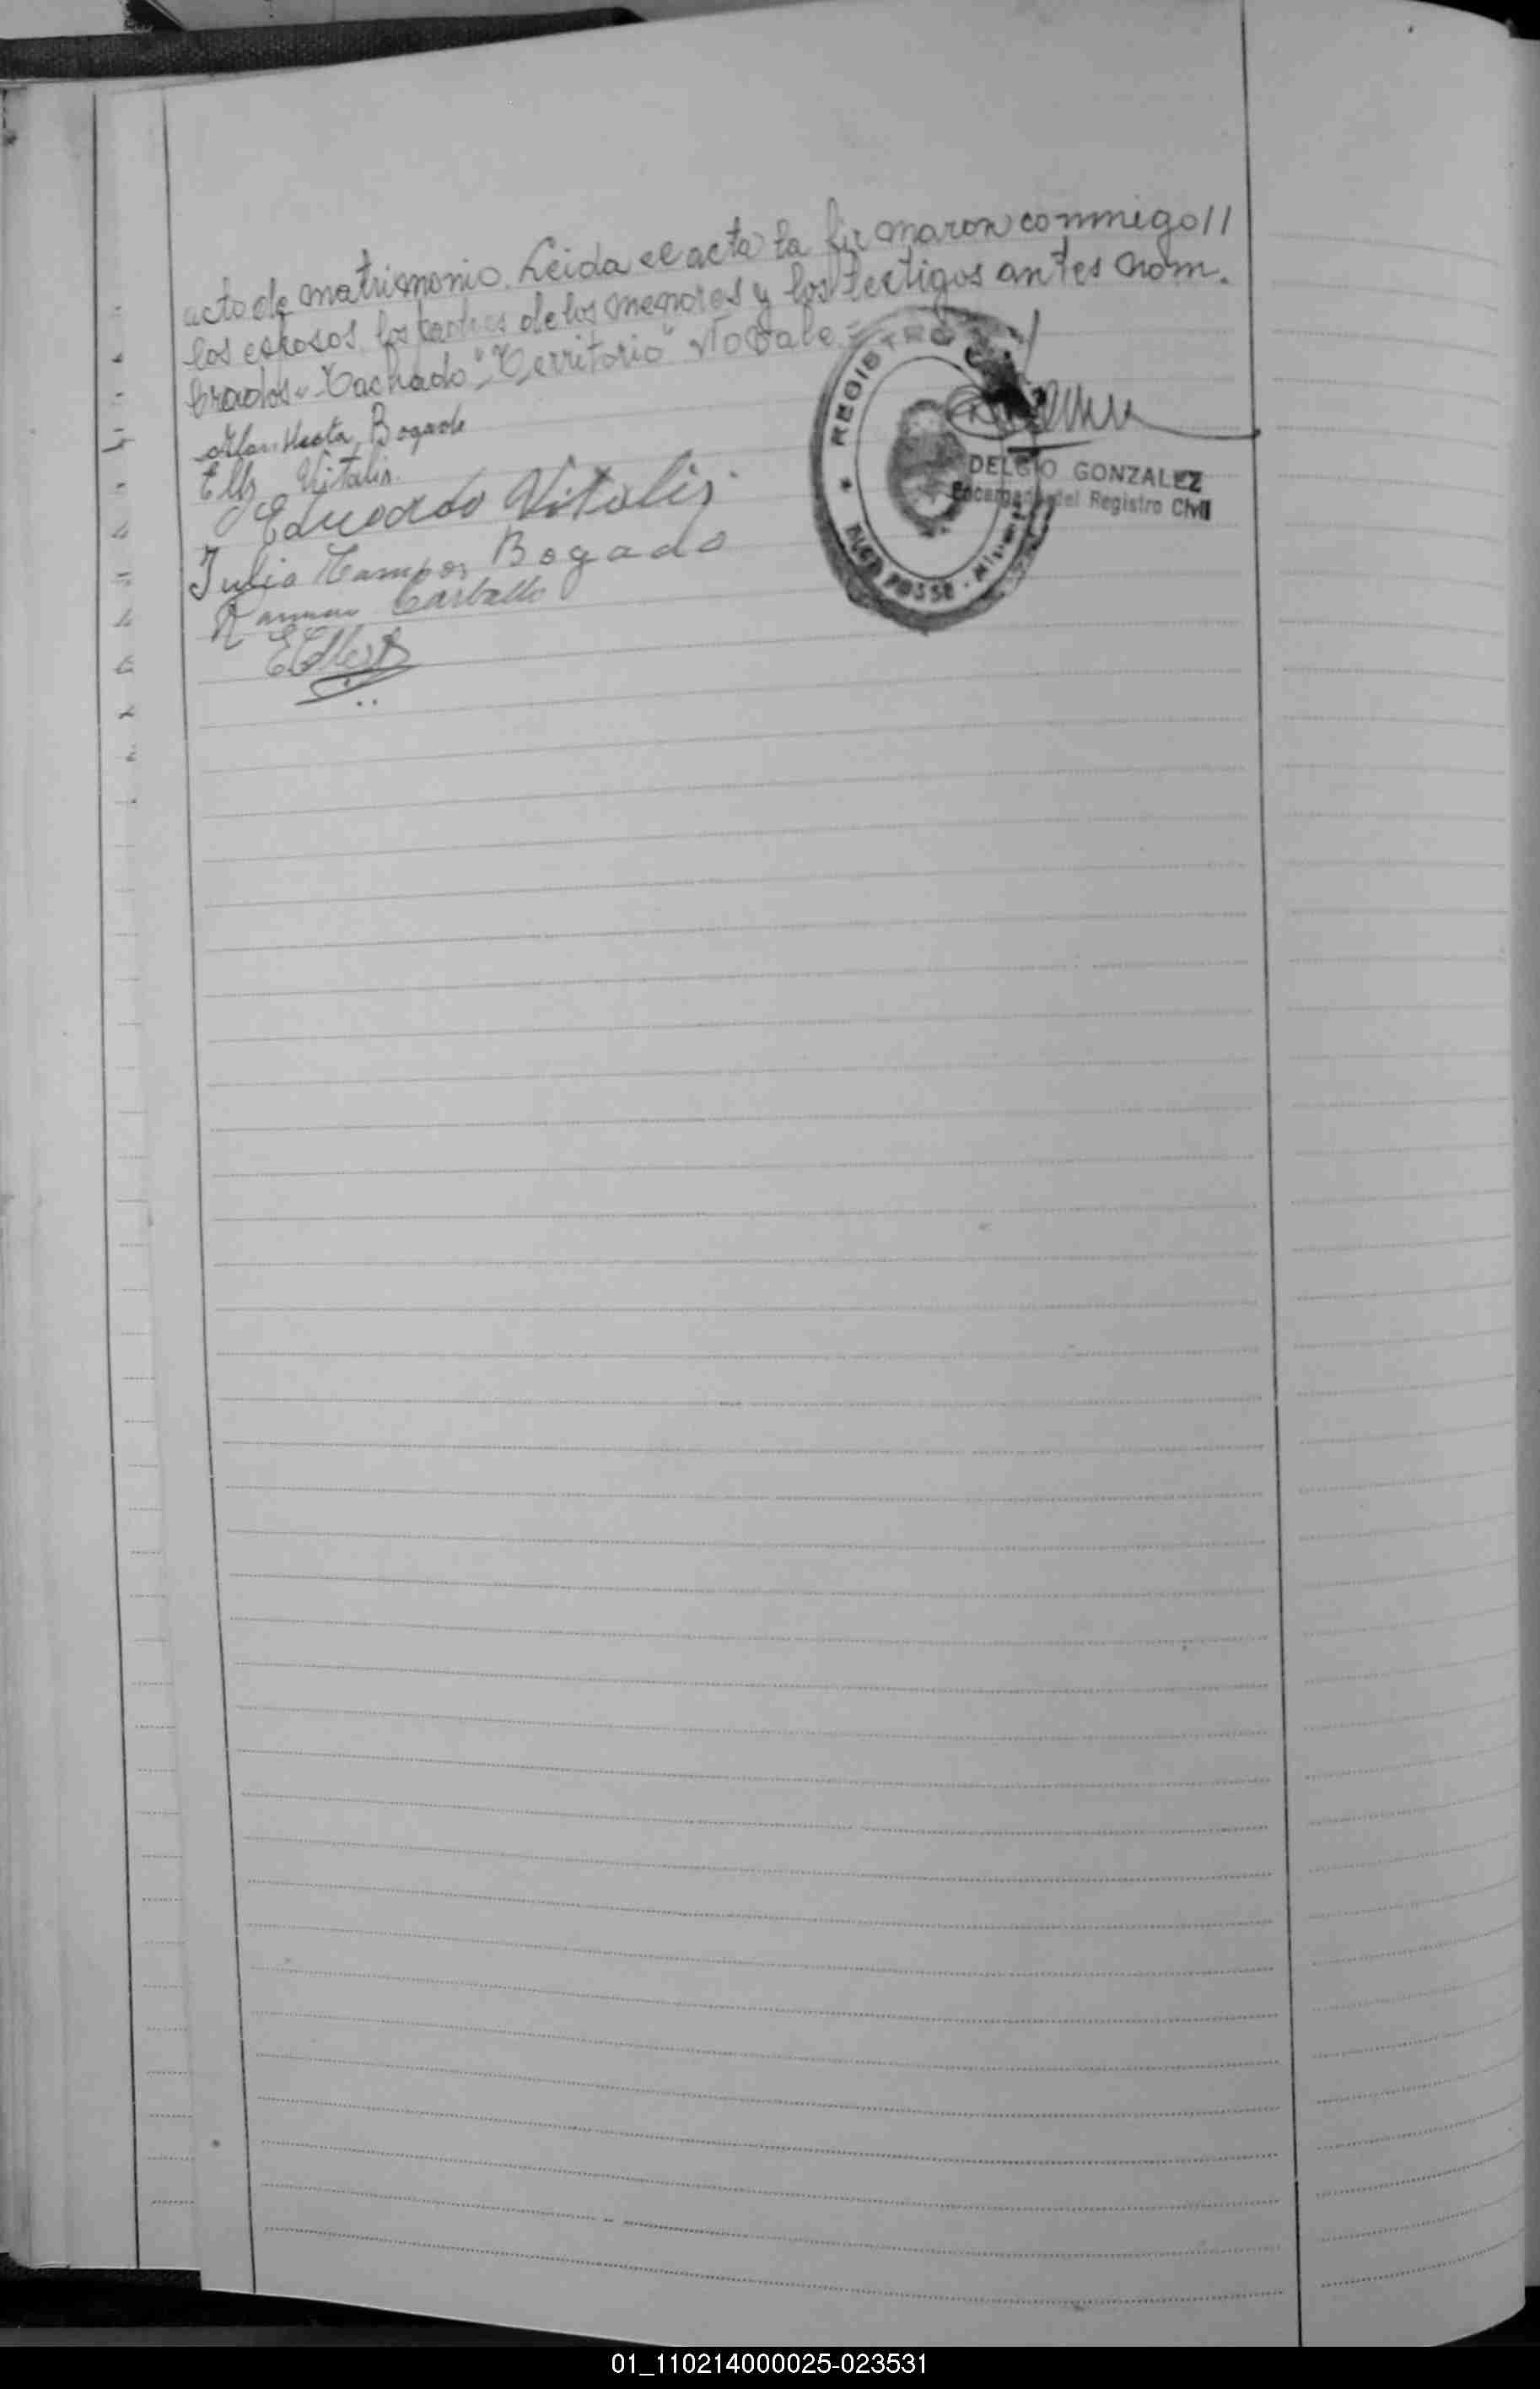 acto de matrimonio. Leida el acta la firmaron conmigo//
los esposos, los padres de los menores y los testigos antes nom.
brados.- Tachado "Territorio" No Vale=
Bogado
Elly Vitalis.
Eduardo Vitalis.
Julio Campos Bogado
Ramon Carballo
REGISTRO
ALBA POSSE - Misiones
DELCIO GONZALEZ
Encargado del Registro Civil
01_110214000025-023531